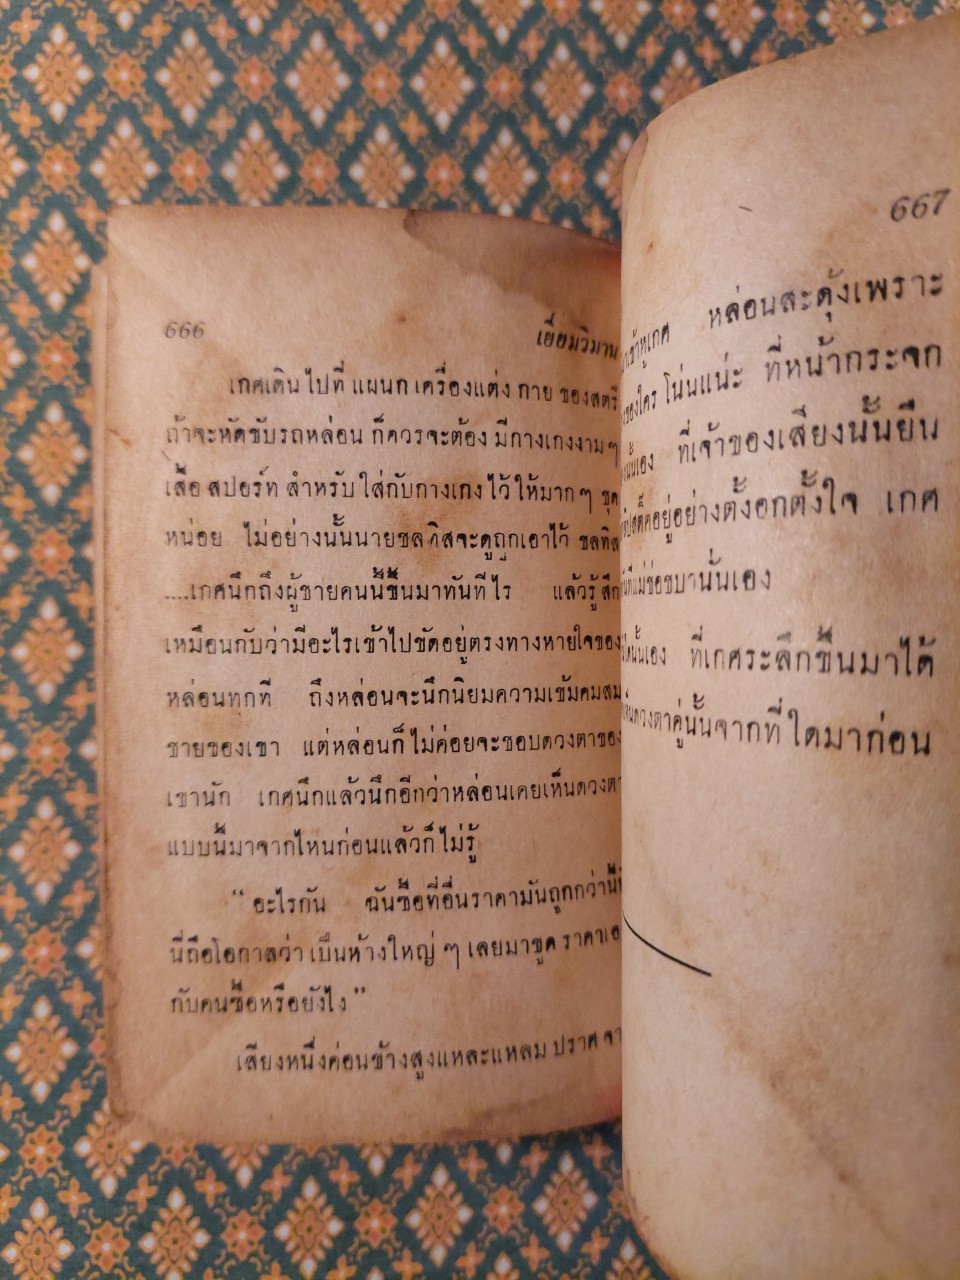 666
เยี่ยมวิมาน
เกศเดินไปที่ แผนก เครื่องแต่ง กาย ของสตรี
ถ้าจะหัดขับรถหล่อน ก็ควรจะต้อง มีกางเกงงามๆ
เสื้อ สปอร์ท สำหรับ ใส่กับกางเกง ไว้ ให้มากๆ ชุด
หน่อย ไม่อย่างนั้นนายชลทิสจะดูถูกเอาไว้ ชลทิส
....เกศนึกถึงผู้ชายคนนี้ขึ้นมาทันที ไร แล้วรู้สึก
เหมือนกับว่ามีอะไรเข้าไปขัดอยู่ตรงทางหายใจของ
หล่อนทุกที ถึงหล่อนจะนึกนิยมความเข้มคมสม
ชายของเขา แต่หล่อนก็ ไม่ค่อยจะชอบดวงตาของ
เขานัก เกศนึกแล้วนึกอีกว่าหล่อนเคยเห็นดวงตา
แบบนี้มาจากไหนก่อนแล้วก็ ไม่รู้
“ อะไรกัน ฉันซื้อที่อื่นราคามันถูกกว่านี้
นี่ถือโอกาสว่า เป็นห้างใหญ่ ๆ เลยมาขูด ราคาเอ
กับคนซื้อหรือยังไง ”
เสียงหนึ่งค่อนข้างสูงแหละแหลม ปราศ จา
667
เข้าหูเกศ หล่อนสะดุ้งเพราะ
ของใคร โน่นแน่ะ ที่หน้ากระจก
นั้นเอง ที่เจ้าของเสียงนั้นยืน
อยู่อย่างตั้งอกตั้งใจ เกศ
ที่แม่ช่อชบานั่นเอง
นั้นเอง ที่เกศระลึกขึ้นมาได้
ดวงตาคู่นั้นจากที่ ใดมาก่อน